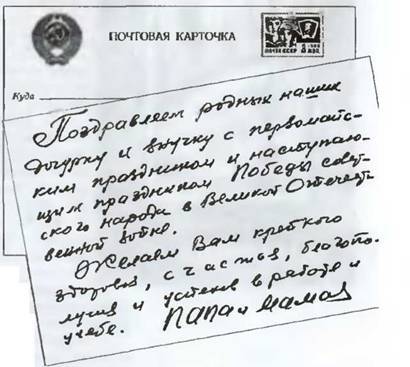 ПОЧТОВАЯ КАРТОЧКА
ПОЧТА СССР
Куда
Поздравляем родных наших
дочурку и внучку с первомайс-
ким праздником и наступаю-
щим праздником Победы совет-
ского народа в Великой Отечест-
венной войне.
Желаем Вам крепкого
здоровья, счастья, благопо-
лучия и успехов в работе и
учебе. Папа и мама